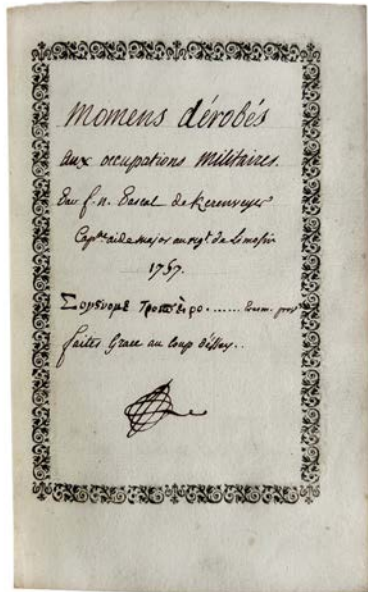 Momens dérobés
aux occupations militaires.
Par f. n. Pascal de Kerenveyer
Cap.ne aide major au regt. de Limosin
1757.
faites Grace au coup d'Essay..